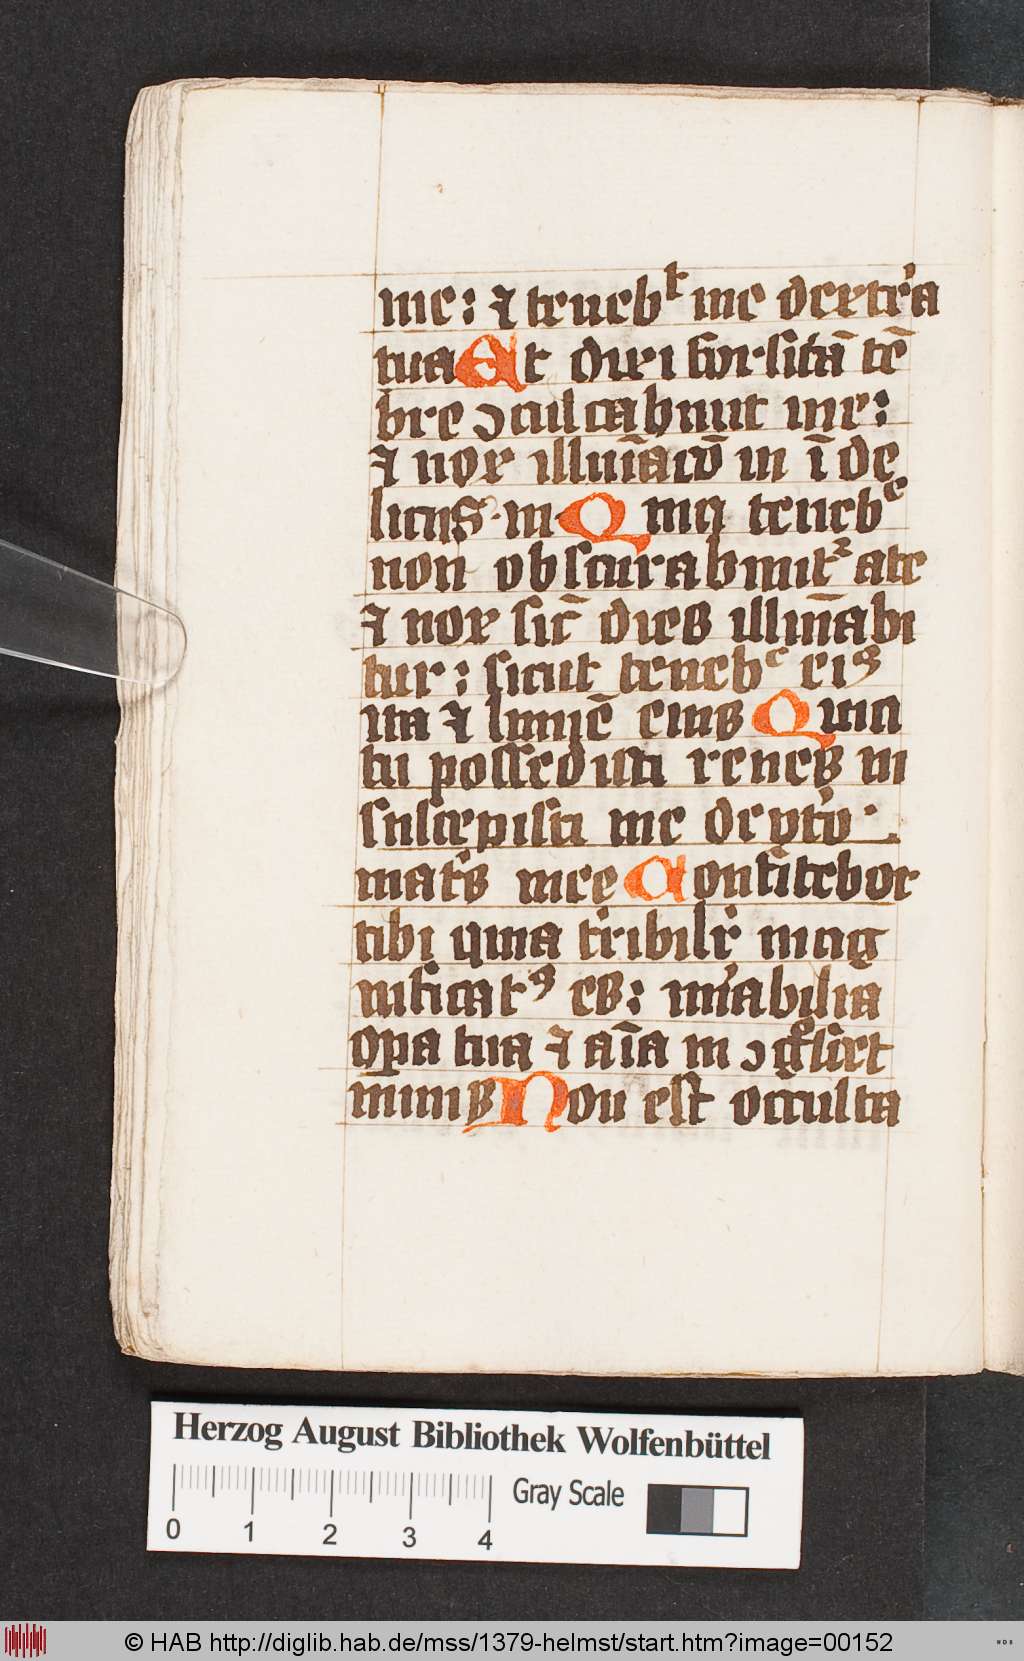 me: ⁊ tenebᵗ me dext'a
tua Et dixi forsitā tē
bre ɔculcabunt me:
⁊ nox illuīacō in ī de
liciis m Q̇ma tenebᵉ
non obscurabunt᷑ a te
⁊ nox sic̄ dies illum̄abi
tur: sicut tenebᶜ eiꝰ
ita ⁊ lumē eius Quia
tu possedisti renes m
suscepisti me de vt'o
mat's mee Confitebor
tibi quia t'ribilr' mag
nificatꝰ es: mi'abilia
opa tua ⁊ aīa m ɔgͦscet
nimis Non est occulta
Herzog August Bibliothek Wolfenbüttel
0 1 2 3 4 Gray Scale
© HAB http://diglib.hab.de/mss/1379-helmst/start.htm?image=00152